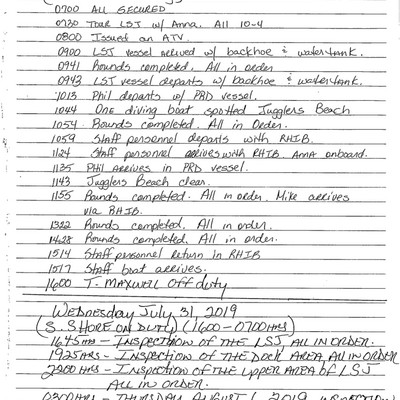 0700 ALL SECURED
0730 Tour LSJ w/ Anna. All 10-4
0800 Issued an ATV.
0900 LSJ vessel arrived w/ backhoe & watertank.
0941 Rounds completed. All in order
0943 LSJ vessel departs w/ backhoe & watertank.
1013 Phil departs w/ PRD vessel.
1044 One diving boat spotted Jugglers Beach
1054 Rounds completed. All in Order.
1059 Staff personnel departs with RHIB.
1124 Staff personnel arrives with RHIB. Anna onboard.
1135 Phil arrives in PRD vessel.
1143 Jugglers Beach clear.
1155 Rounds completed. All in order. Mike arrives
via RHIB.
1322 Rounds completed. All in order.
1428 Rounds completed. All in order.
1514 Staff personnel return in RHIB
1517 Staff boat arrives.
1600 J. Maxwell Off duty
Wednesday July 31, 2019
(S. SHORE ON DUTY) (1600-0700HRS)
1645HRS - INSPECTION OF THE LSJ ALL IN ORDER.
1925HRS - INSPECTION OF THE DOCK AREA, ALL IN ORDER
2200HRS - INSPECTION OF THE UPPER AREA OF LSJ
ALL IN ORDER.
THURSDAY AUGUST 1, 2019